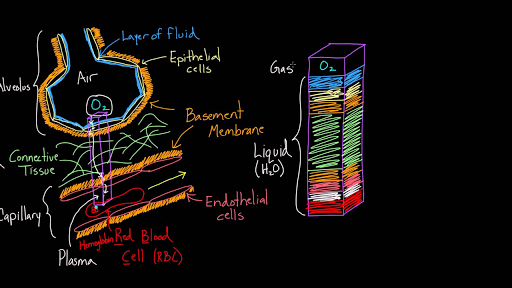 Layer of Fluid
Epithelial
cells
Alveolus
Air
O2
Basement
Membrane
Connective
Tissue
Capillary
Endothelial
cells
Hemoglobin
Red Blood
Cell (RBC)
Plasma
Gas
O2
Liquid
(H2O)